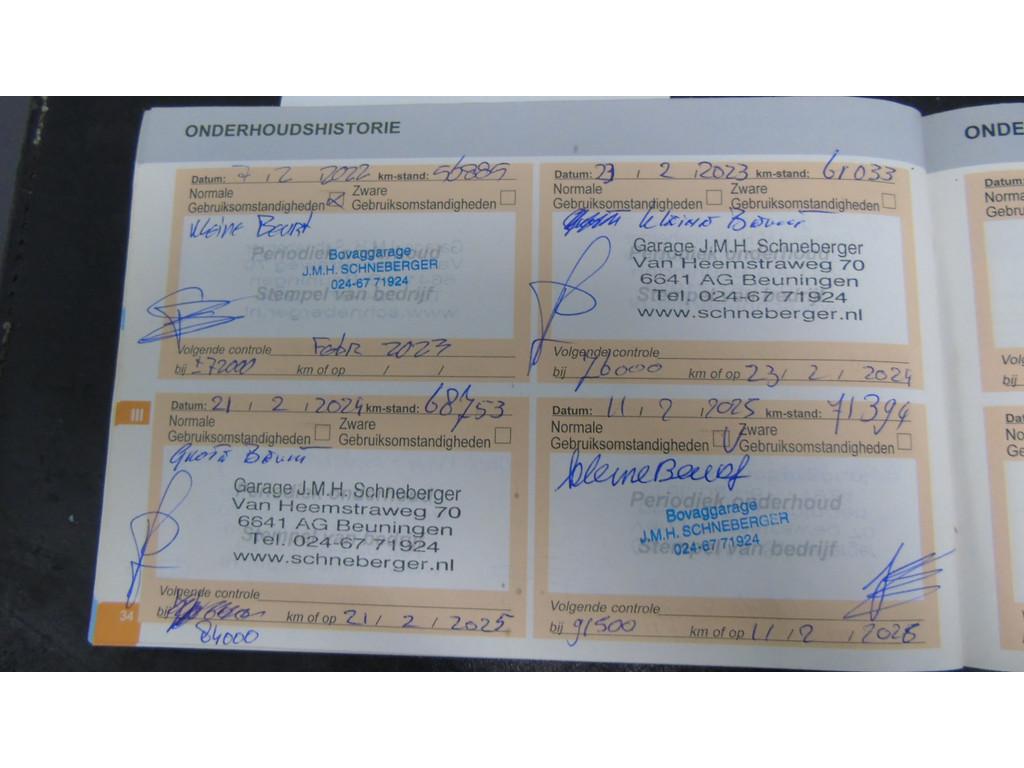 ONDERHOUDSHISTORIE
Datum: 7 / 2 / 2022 km-stand: 56885
Normale Gebruiksomstandigheden ☒ Zware Gebruiksomstandigheden ☐
Kleine Beurt
Periodiek onderhoud
Bovaggarage
J.M.H. SCHNEBERGER
024-67 71924
Stempel van bedrijf
Volgende controle Febr 2023
bij ±72000 km of op / /
Datum: 23 / 2 / 2023 km-stand: 61033
Normale Gebruiksomstandigheden ☐ Zware Gebruiksomstandigheden ☐
Kleine Beurt
Garage J.M.H. Schneberger
Van Heemstraweg 70
6641 AG Beuningen
Tel. 024-67 71924
www.schneberger.nl
Volgende controle
bij 76000 km of op 23 / 2 / 2024
III
Datum: 21 / 2 / 2024 km-stand: 68753
Normale Gebruiksomstandigheden ☐ Zware Gebruiksomstandigheden ☐
Grote Beurt
Garage J.M.H. Schneberger
Van Heemstraweg 70
6641 AG Beuningen
Tel. 024-67 71924
www.schneberger.nl
Volgende controle
bij km of op 21 / 2 / 2025
84000
34
Datum: 11 / 2 / 2025 km-stand: 71394
Normale Gebruiksomstandigheden ☐ V Zware Gebruiksomstandigheden ☐
kleine Beurt
Periodiek onderhoud
Bovaggarage
J.M.H. SCHNEBERGER
024-67 71924
Stempel van bedrijf
Volgende controle
bij 91500 km of op 11 / 2 / 2026
ONDE
Datum:
Norma
Gebru
Vo
bij
Datu
No
Ge
Vo
bij